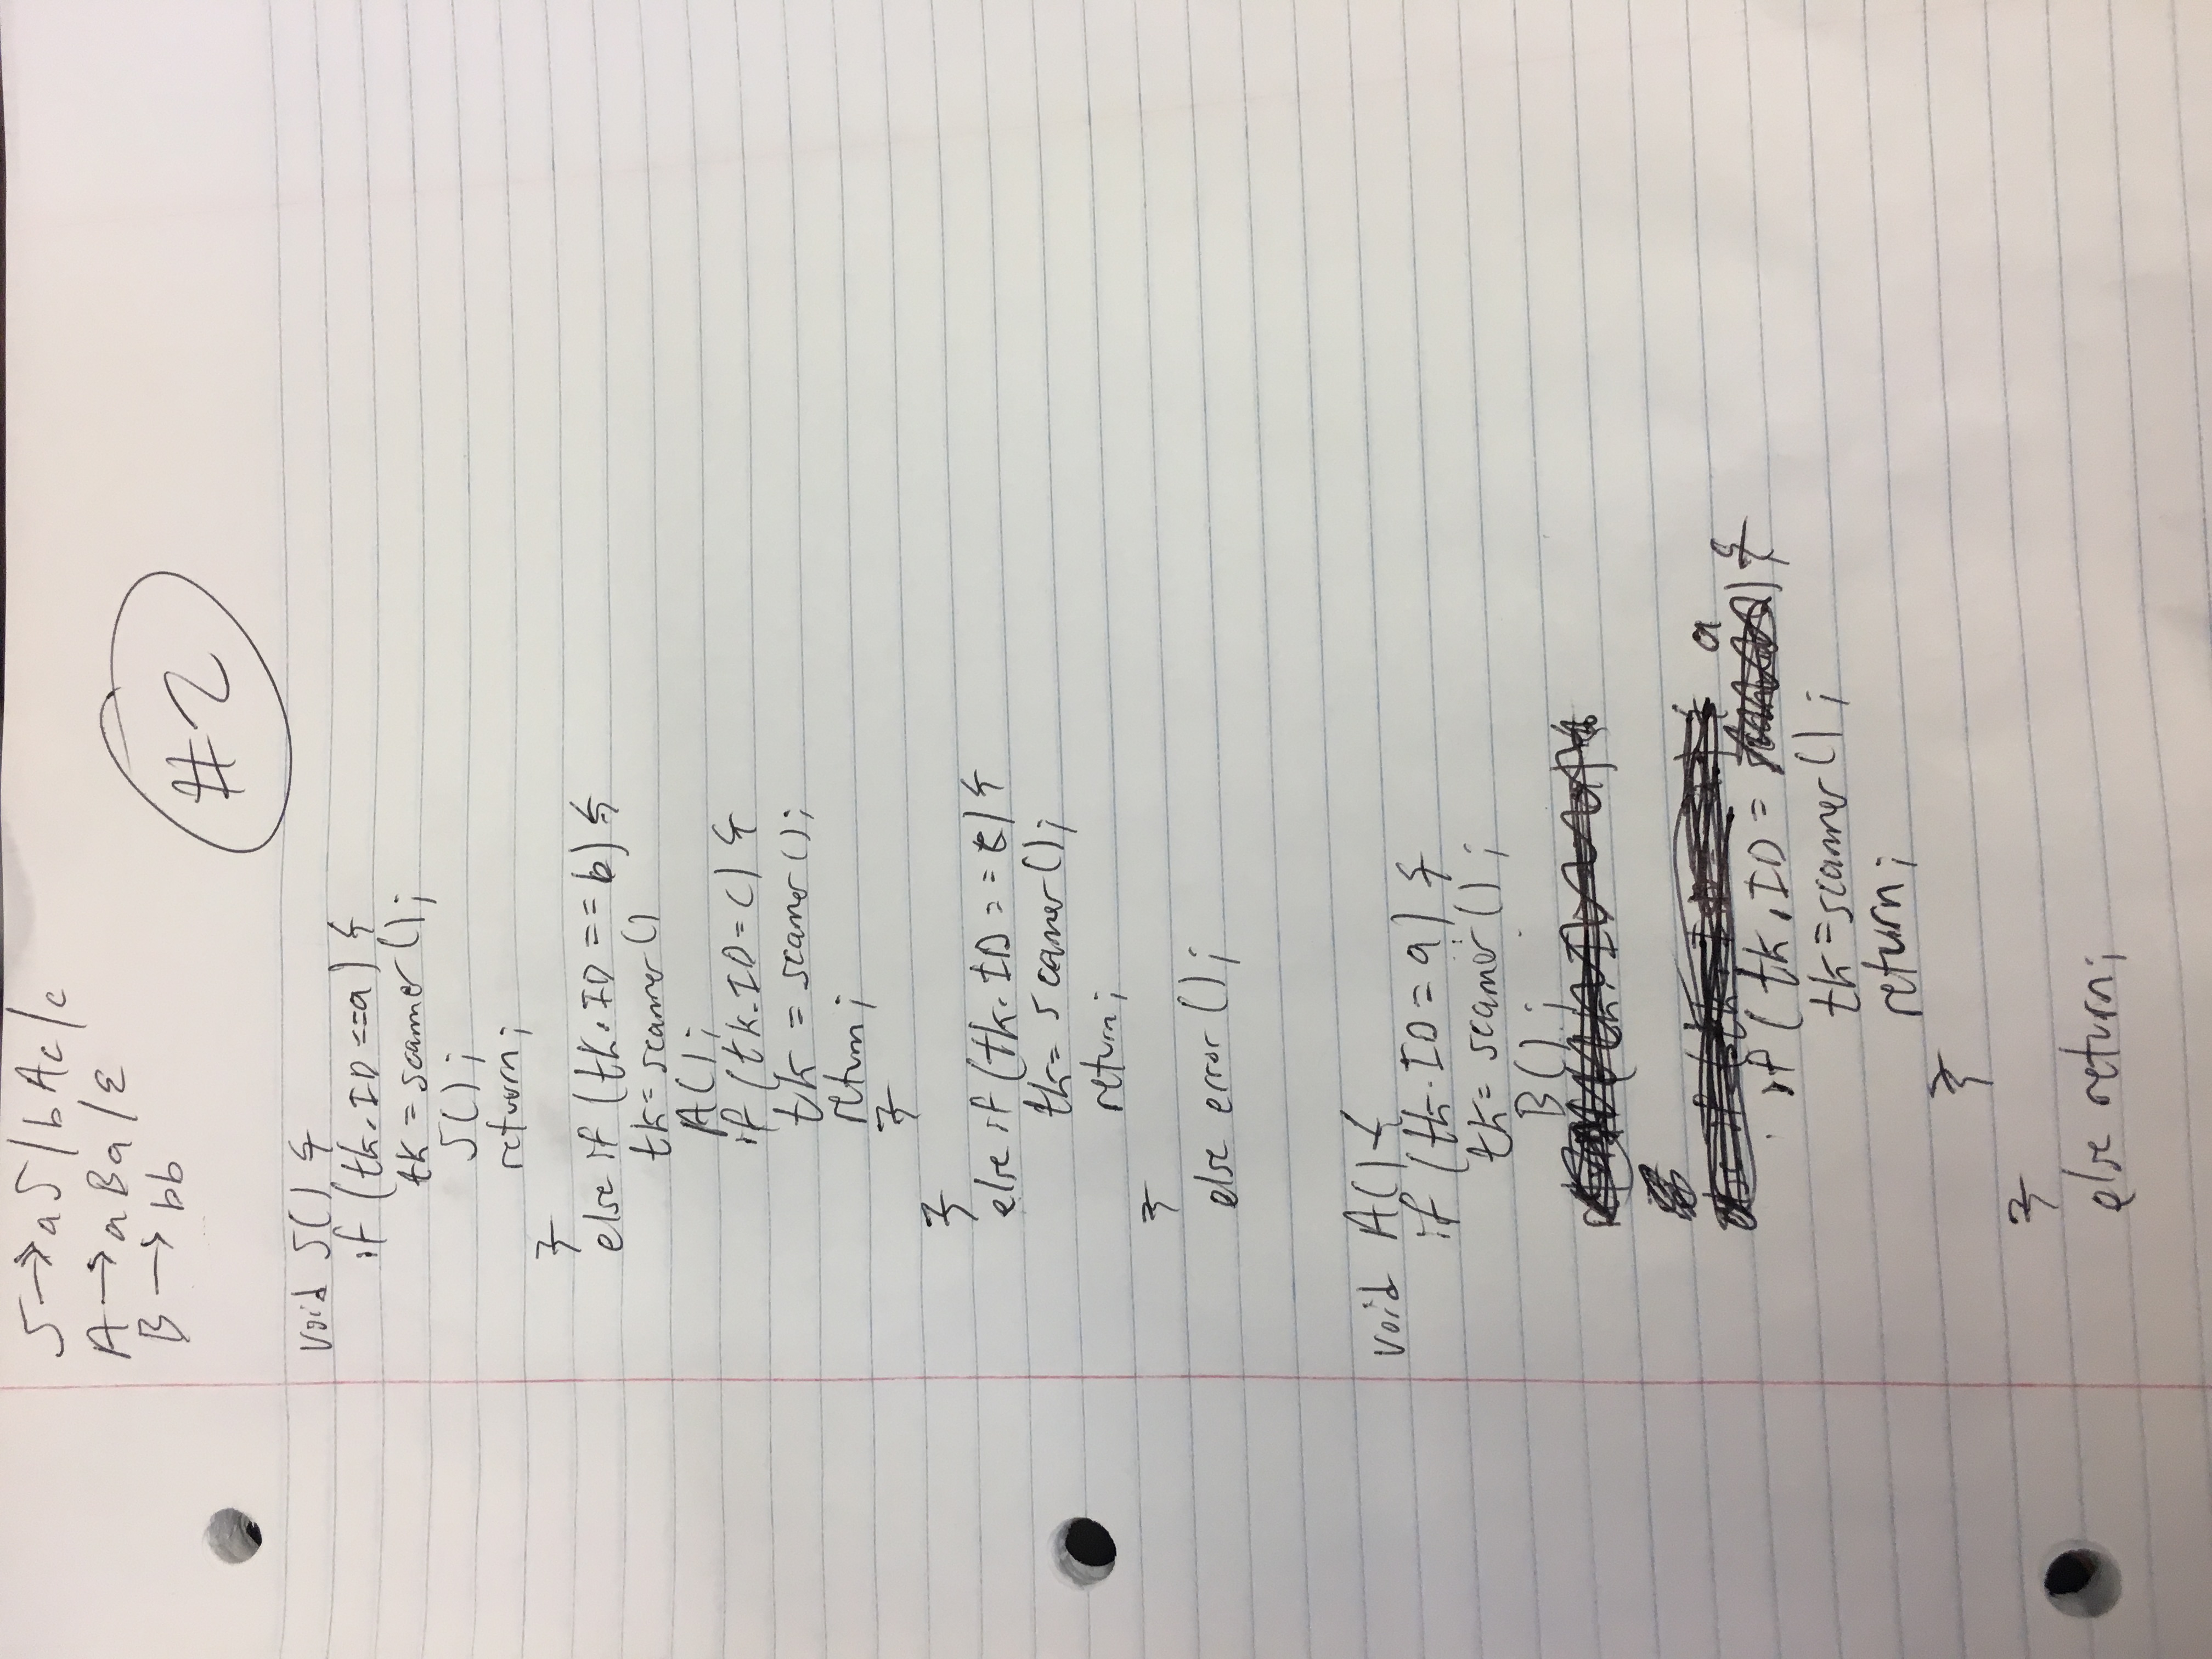 S → aS / bAc / c
A → aBa / ε
B → bb
#2
void S() {
if (tk.ID == a) {
tk = scanner();
S();
return;
}
else if (tk.ID == b) {
tk = scanner()
A();
if (tk.ID = c) {
tk = scanner();
return;
}
}
else if (tk.ID == c) {
tk = scanner();
return;
}
else error();
void A() {
if (tk.ID = a) {
tk = scanner();
B();
a
if (tk.ID = ) {
tk = scanner();
return;
}
}
else return;